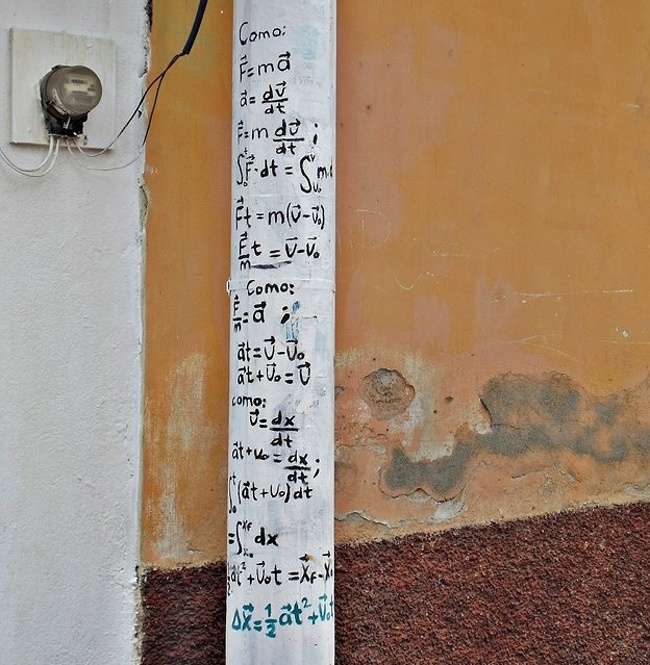 Como:
F⃗=ma⃗
a⃗=dv⃗/dt
F⃗=m dv⃗/dt;
∫₀ᵗF⃗·dt = ∫ᵥ₀ᵛ m.d
F⃗t = m(v⃗-v⃗₀)
F⃗/m t = v⃗-v⃗₀
Como:
F⃗/m = a⃗ ;
a⃗t=v⃗-v⃗₀
a⃗t+v⃗₀=v⃗
como:
v⃗=dx/dt
a⃗t+v₀=dx/dt;
∫₀ᵗ(a⃗t+v₀)dt
=∫ₓ₀ˣᶠ dx
½a⃗t²+v⃗₀t =x⃗F-x⃗₀
Δx⃗=½a⃗t²+v⃗₀t